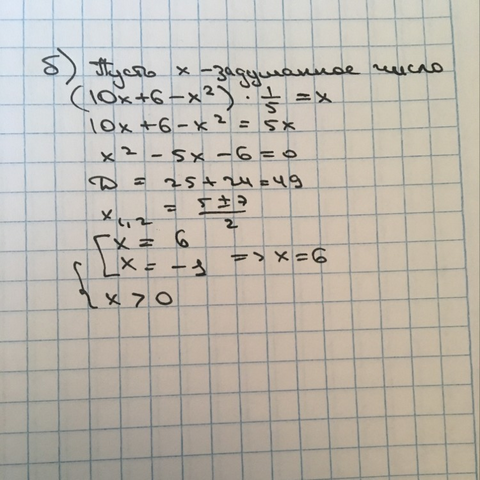 б) Пусть x - задуманное число
(10x+6-x²) · 1/5 = x
10x+6-x² = 5x
x² - 5x - 6 = 0
D = 25+24=49
x₁,₂ = (5±7)/2
{ [ x = 6
x = -1 => x=6
x > 0